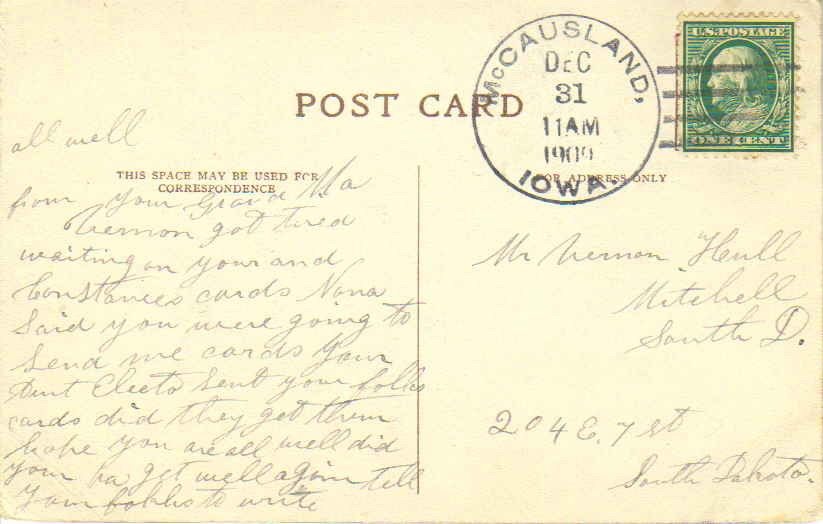 McCAUSLAND,
DEC
31
11AM
1909
IOWA.
U.S. POSTAGE
ONE CENT
POST CARD
THIS SPACE MAY BE USED FOR
CORRESPONDENCE
FOR ADDRESS ONLY
all well
from your Grand Ma
Vernon got tired
waiting on your and
Constances cards Nona
Said you were going to
Send me cards your
Aunt Electo Sent your folks
cards did they get them
hope you are all well did
your pa get well again tell
your folks to write
Mr Vernon Hull
Mitchell
South D.
204 E. 7 st
South Dakota.